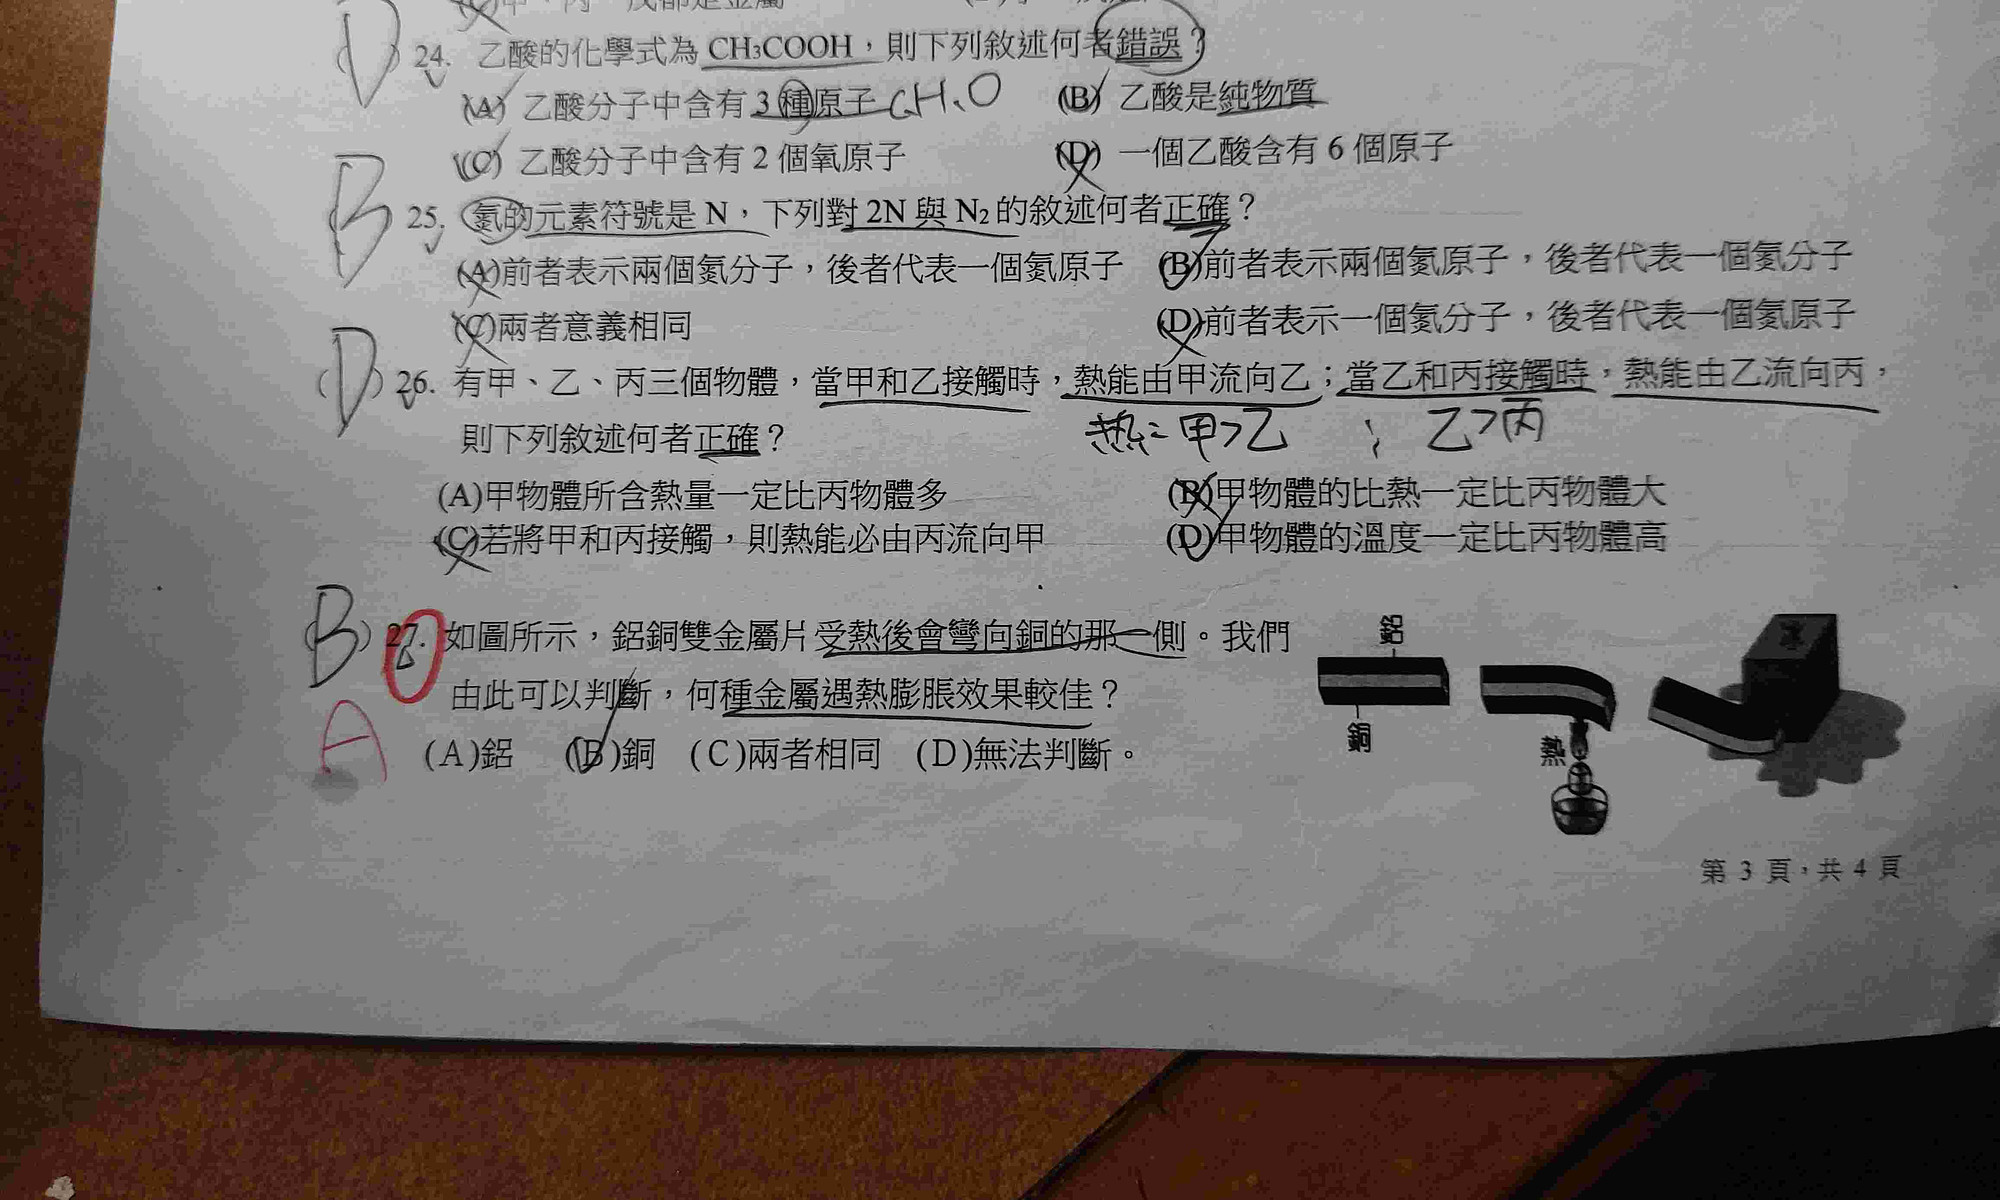 D 24. 乙酸的化學式為 CH₃COOH，則下列敘述何者錯誤？
(A) 乙酸分子中含有 3 種原子 C、H、O (B) 乙酸是純物質
(C) 乙酸分子中含有 2 個氧原子 (D) 一個乙酸含有 6 個原子
B 25. 氮的元素符號是 N，下列對 2N 與 N₂ 的敘述何者正確？
(A)前者表示兩個氮分子，後者代表一個氮原子 (B)前者表示兩個氮原子，後者代表一個氮分子
(C)兩者意義相同 (D)前者表示一個氮分子，後者代表一個氮原子
(D) 26. 有甲、乙、丙三個物體，當甲和乙接觸時，熱能由甲流向乙；當乙和丙接觸時，熱能由乙流向丙，
則下列敘述何者正確？ 熱：甲>乙 ； 乙>丙
(A)甲物體所含熱量一定比丙物體多 (B)甲物體的比熱一定比丙物體大
(C)若將甲和丙接觸，則熱能必由丙流向甲 (D)甲物體的溫度一定比丙物體高
(B) 27. 如圖所示，鋁銅雙金屬片受熱後會彎向銅的那一側。我們
由此可以判斷，何種金屬遇熱膨脹效果較佳？
A (A)鋁 (B)銅 (C)兩者相同 (D)無法判斷。
鋁
銅
熱
第 3 頁，共 4 頁